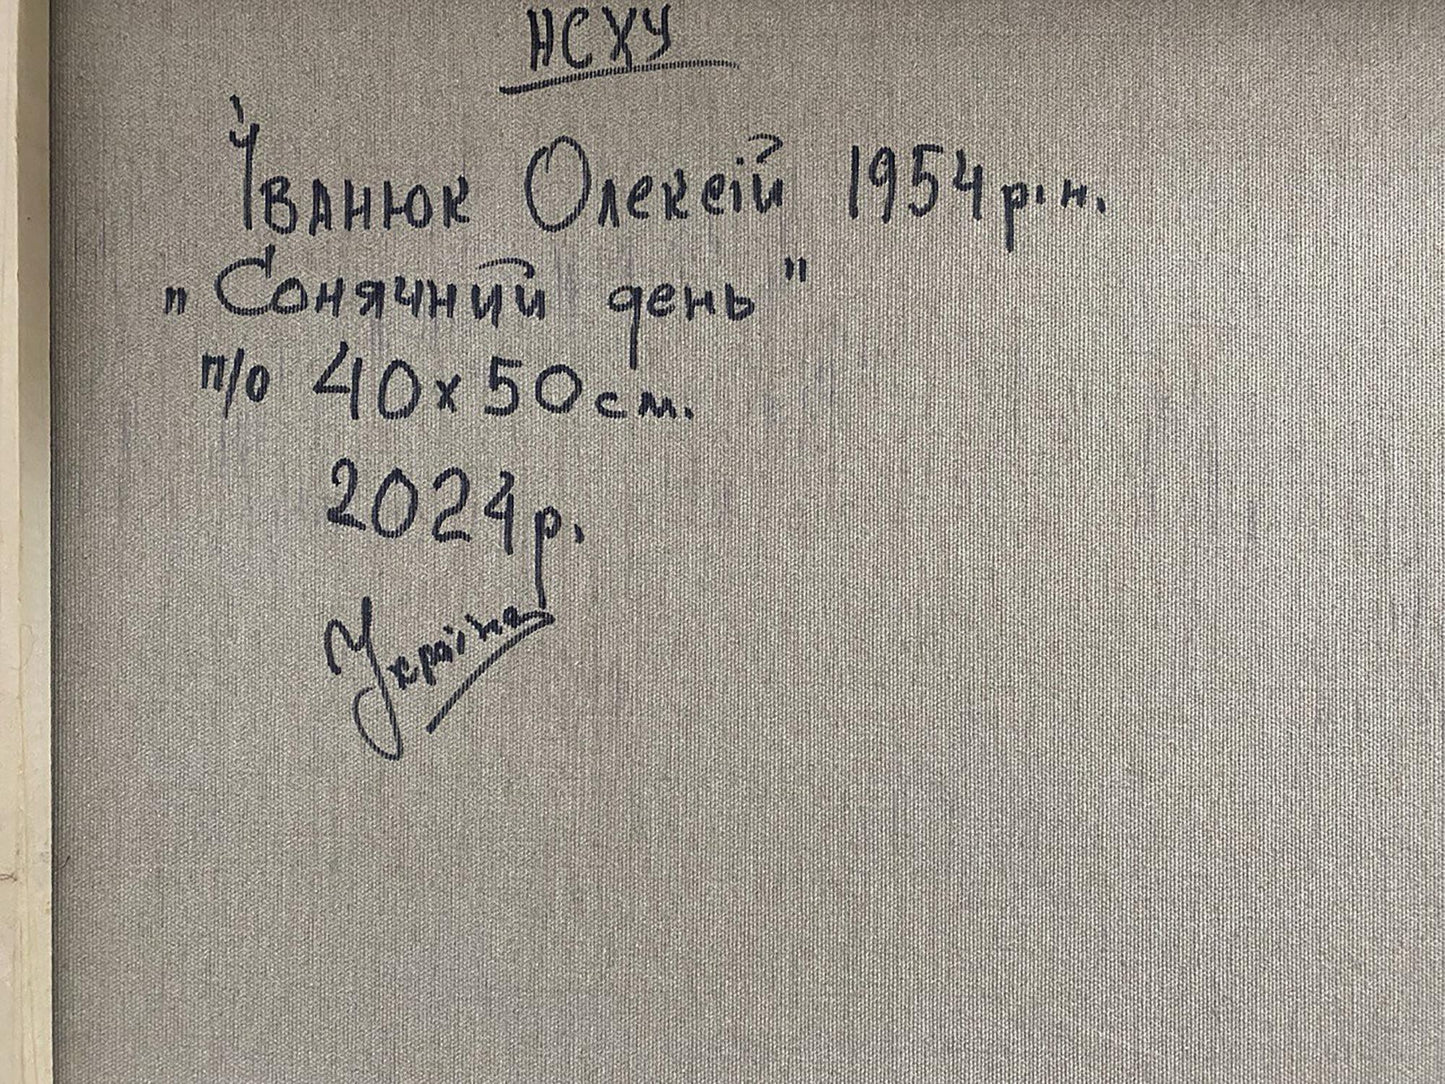 НСХУ
Іванюк Олексій 1954 р.н.
"Сонячний день"
п/о 40х50см.
2024р.
Україна